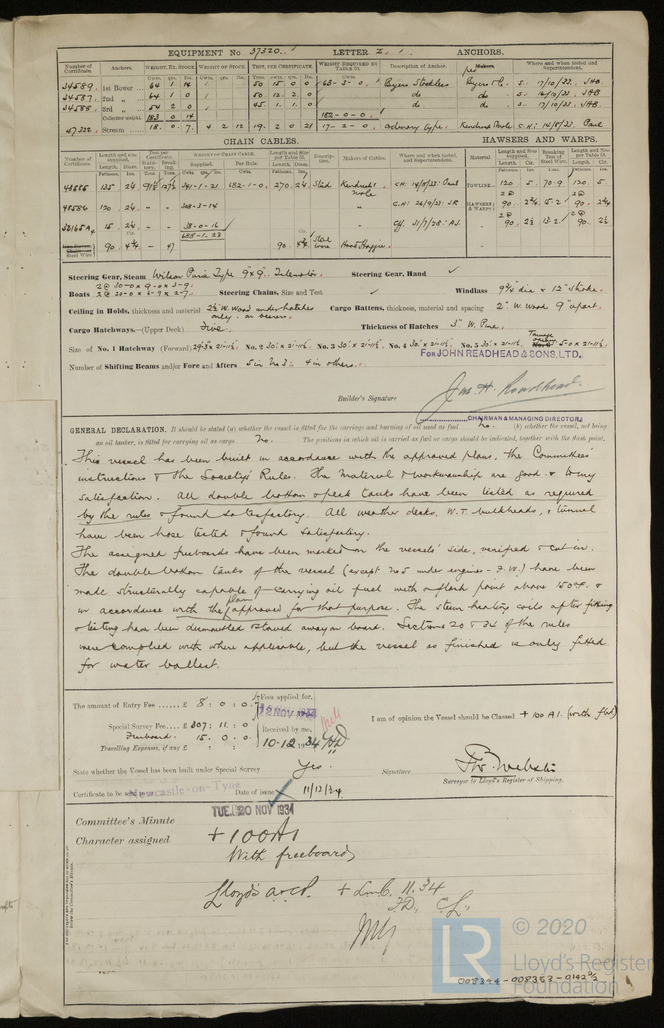 EQUIPMENT No 37320. LETTER Z. ANCHORS.
Number of Certificate. Anchors. WEIGHT, EX. STOCK. WEIGHT OF STOCK. TEST, PER CERTIFICATE. WEIGHT REQUIRED BY TABLE 31. Description of Anchor. Makers. Where and when tested and Superintendent.
34589. 1st Bower 64 1 14 50 15 0 0 63-3-0. Byers Stockless Byers & Co. S. 17/10/33. JHB.
34587. 2nd 64 1 0 50 12 2 0 do do S.
34588. 3rd 54 2 0 45. 1. 1. 0 do do S. 17/10/33. JHB.
Collective weight. 183 0 14 182-0-0
47322. Stream 18. 0. 7. 4 2 12 19. 2 0 21 17-2-0 Ordinary type. C.H: 14/8/33. Paul
CHAIN CABLES. HAWSERS AND WARPS.
Number of Certificate. Length and size supplied. Test per Certificate. WEIGHT OF CHAIN CABLE. Length and size per Table 31. Description. Makers of Cables. Where and when tested, and Superintendent. Material. Length and Size supplied. Breaking Test of Steel Wire. Length and Size per Table 31.
48585 135 2 341-1-21 682-1-0 270 Stud Kendrick & Mole C.H: 14/8/33: Paul TOWLINE. 120 5 70.9 120 5
48586 120 308-3-14 C.H: 26/9/33: JR HAWSERS & WARPS 90 15.2 90
15 38-0-16 13.2 90 2½
688-1-23
90 47 90 Steel wire Hood Haggie
Steering Gear, Steam Wilson Pirrie Type 9" x 9". Telemotor. Steering Gear, Hand ✓
Boats 2 @ 30-0 x 9-0 x 3-9. 2 @ 20-0 x 6-9 x 2-7. Steering Chains, Size and Test ✓ Windlass 9¾ dia x 12" stroke.
Ceiling in Holds, thickness and material 2½ W. Wood under hatches only. Cargo Battens, thickness, material and spacing 2" W. Wood 9" apart.
Cargo Hatchways.—(Upper Deck) Five. Thickness of Hatches 3" W. Pine.
Size of No. 1 Hatchway (Forward) 29-3 x 21-11½. No. 2 30' x 21-11½. No. 3 30' x 21-11½. No. 4 30' x 21-11½. No. 5 30' x 21-11½. Tonnage opening 5-0 x 21-11½.
FOR JOHN READHEAD & SONS, LTD.
Number of Shifting Beams and/or Fore and Afters 5 in No 3: 4 in others.
Builder's Signature Jas. H. Readhead.
CHAIRMAN & MANAGING DIRECTOR.
GENERAL DECLARATION. It should be stated (a) whether the vessel is fitted for the carriage and burning of oil used as fuel no. (b) whether the vessel, not being
an oil tanker, is fitted for carrying oil as cargo no. The positions in which oil is carried as fuel or cargo should be indicated, together with the flash point,
This vessel has been built in accordance with the approved plans, the Committees'
instructions & the Society's Rules. The material & workmanship are good & to my
satisfaction. All double bottom & peak tanks have been tested as required
by the rules & found satisfactory. All weather decks, W.T. bulkheads, & tunnel
have been hose tested & found satisfactory.
The assigned freeboards have been marked on the vessels' side, verified & cut in.
The double bottom tanks of the vessel (except No 5 under engines - F.W.) have been
made structurally capable of carrying oil fuel with a flash point above 150°F. &
in accordance with the plans approved for that purpose. The steam heating coils after fitting
& testing have been dismantled & stowed away on board. Sections 20 & 34 of the rules
were complied with where applicable, but the vessel as finished is only fitted
for water ballast.
The amount of Entry Fee £ 8 : 0 : 0. Fees applied for,
12 NOV 1934
Special Survey Fee £ 307 : 11 : 0 Received by me,
Freeboard. 15. 0. 0. 10.12.1934
Travelling Expenses, if any £
I am of opinion the Vessel should be Classed + 100 A1. (with fbd)
State whether the Vessel has been built under Special Survey Yes. Signature
Surveyor to Lloyd's Register of Shipping.
Certificate to be sent to Newcastle-on-Tyne Date of issue 11/12/34
TUE. 20 NOV 1934
Committee's Minute
Character assigned + 100A1
With freeboard
Lloyd's a&cp. + LMC. 11.34
FD, CL.
LR
© 2020
Lloyd's Register
Foundation
008344-008353-0142 2/2